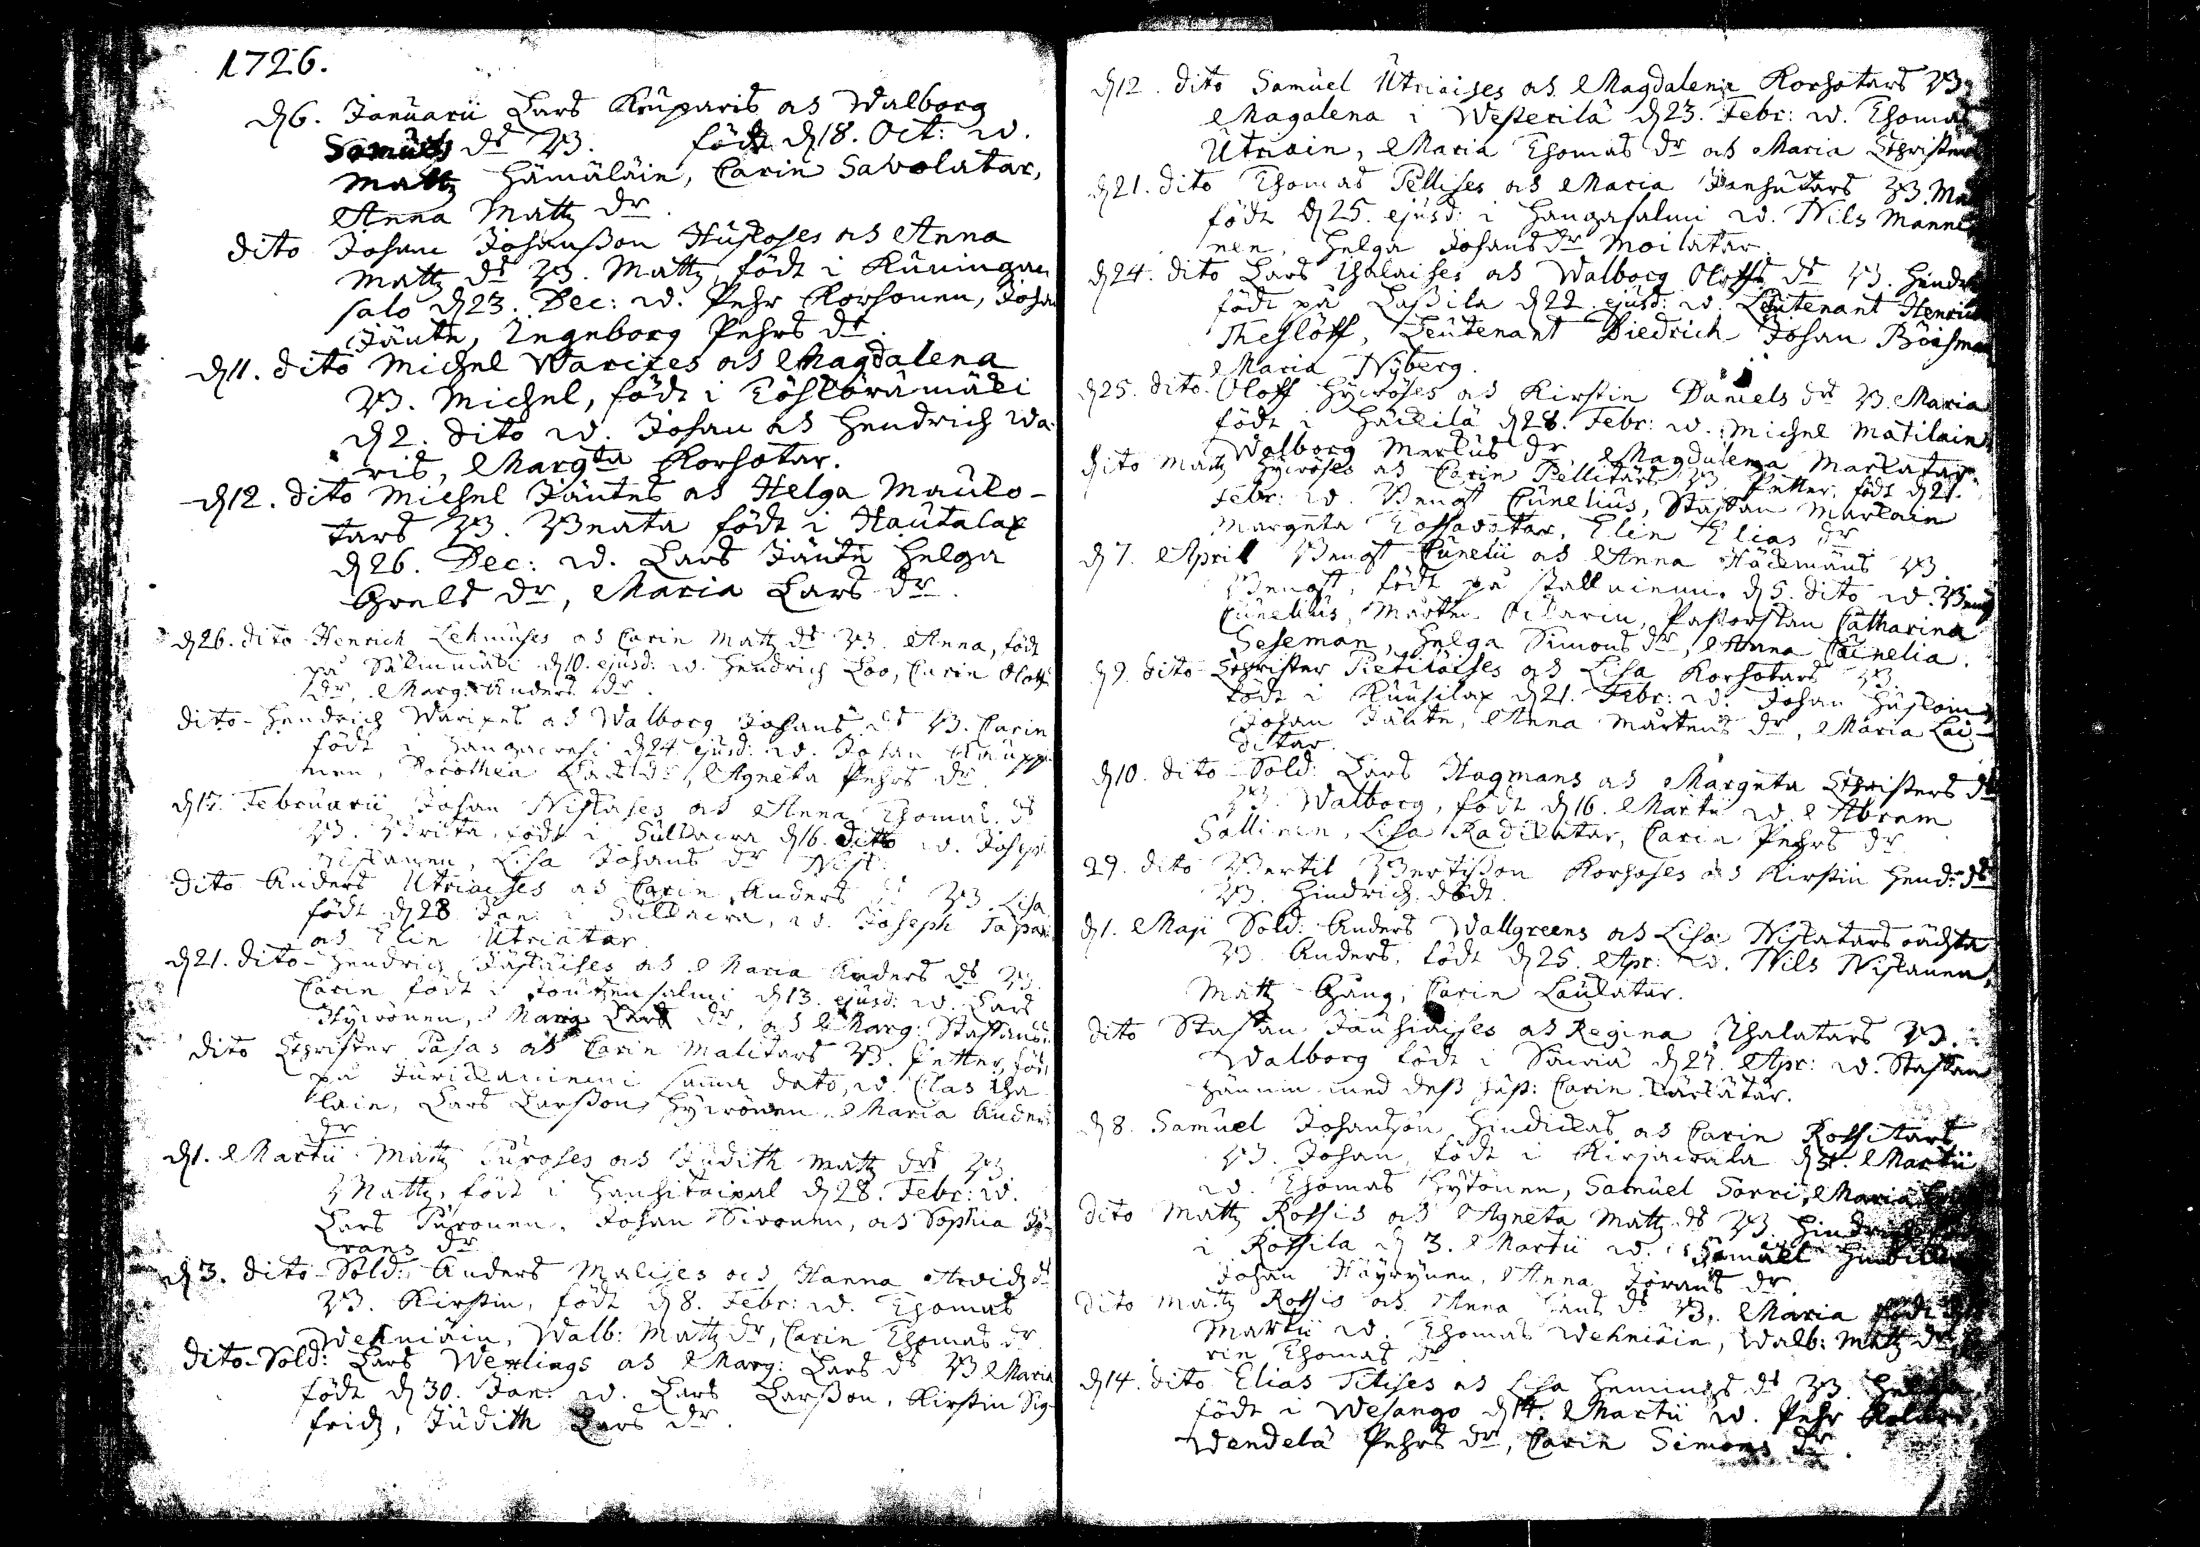 1726.
d 6. Januarii Lars Krüparis as Walborg
Samüels dr B. födt d 18. Oct: w.
Mattz Hämäläin, Carin Savolatar,
Anna Mattz dr.
dito Johan Johanßon Hüskoses as Anna
Mattz dr B. Mattz, födt i Küningan
salo d 23. Dec: w. Pehr Korhonen, Joha
Jänte, Ingeborg Pehrs dr.
d 11. dito Michel Warixes as Magdalena
B. Michel, födt i
d 2. dito w. Johan as Hendrich Wa-
ris, Margta Korhotar.
d 12. dito Michel Jäntes as Helga Mauko-
tars B. Beata födt i Hautalax
d 26. Dec: w. Lars Jänte Helga
Grels dr, Maria Lars dr.
d 26. dito Henrich Lehmüses as Carin Mattz dr B. Anna, födt
på Säkinmäki d 10. ejusd: w. Hendrich Loo, Carin Oloffs
dr, Marg: Anders dr.
dito Hendrich Warixes as Walborg Johans dr B. Carin
födt i d 24 ejusd: w. Johan Kaüppi
nen, Dorothea Lars dr, Agneta Pehrs dr.
d 17. Februarii Johan Niskases as Anna Thomas dr
B. Brita, födt i d 16. dito w. Joseph
Niskanen, Lisa Johans dr Nisk:
dito Anders Utriaises as Carin Anders dr B. Lisa
födt d 28. Jan: i w. Joseph
as Elin Utriatar
d 21. dito Hendrich as Maria Anders dr B.
Carin födt i Joutzensalmi d 13. ejusd: w. Lars
Hyvönen, Marg: Lars dr, as Marg: Staffans
dito Christer Pasas as Carin Malitars B. Petter, födt
på samma dato, w. Clas Tha
lain, Lars Larßon Hyvönen, Maria Anders
dr
d 1. Martii Mattz Püroses as Judith Mattz dr B
Mattz, födt i Hanhitaipal d 28. Febr: w.
Lars Püronen, Johan Sivonen, as Sophia Jö-
rans dr
d 3. dito Sold: Anders Malises as Hanna Arvidz dr
B. Kirstin, födt d 8. Febr: w. Thomas
Wehniäin, Walb: Mattz dr, Carin Thomas dr
dito Sold: Lars Wenlings as Marg: Lars dr B Maria
födt d 30. Jan: w. Lars Larßon, Kirstin Sig-
fridz, Judith Lars dr.
d 12. dito Samuel Utriaises as Magdalena Korhotars B.
Magalena i Westerilä d 23. Febr: w. Thomas
Utriain, Maria Thomas dr as Maria Christers
d 21. dito Thomas Pellises as Maria Janhutars B. Ma
födt d 25. ejusd: i Hangasalmi w. Nils Manni
nen, Helga Johans dr Moilatar.
d 24. dito Lars Thalaises as Walborg Oloffs dr B. Hendr
födt på Laßila d 22. ejusd: w. Leutenant Henric
Thesloff, Leutenant Diedrich Johan Böisman
Maria Nyberg.
d 25. dito Oloff Hyvöses as Kirstin Daniels dr B. Maria
födt i Häckilä d 28. Febr: w. Michel Matilain
Walborg Markus dr, Magdalena Markatar.
dito Mattz Hyvöses as Carin Pellitars B. Petter, födt d 21.
Febr: w. Bengt Cunelius, Staffan Markain
Margeta Elin Elias dr
d 7. April Bengt Cunelii as Anna Häckmans B
Bengt, födt på d 5. dito w. Bengt
Cunelius, Pastorskan Catharina
Geseman, Helga Simons dr, Anna Cunelia.
d 9. dito Christer Pietiläises as Lisa Korhotars B
födt i Kuusilax d 21. Febr: w. Johan Hüskoin
Johan Jänte, Anna Mårtens dr, Maria Lai-
ditar.
d 10. dito Sold: Lars Hagmans as Margeta Christers dr
B. Walborg, födt d 16. Martii w. Abram
Sallinen, Lisa Carin Pehrs dr
29. dito Bertil Bertißon Korhoses as Kirstin Hend: dr
B. Hindrich dödt.
d 1. Maji Sold: Anders Wallgreens as Lisa Niskatars oächta
B. Anders, födt d 25. Apr: w. Nils Niskanen,
Mattz Gäng, Carin Laukatar.
dito Staffan Jauhiaises as Regina Thalatars B.
Walborg födt i Savia d 27. Apr: w. Staffan
Hännin med deß hust: Carin Kärkätar.
d 8. Samuel Johansson Hindickas as Carin Rossitars
B. Johan, födt i Kirjavala d 31. Martii
w. Thomas Hytönen, Samuel Sorri, Maria
dito Mattz Rossis as Agneta Mattz dr B. Hindrich
i Rossila d 3. Martii w. Samuel
Johan Häyrynen, Anna Jörans dr.
dito Mattz Rossis as Anna Lars dr B. Maria födt
Martii w. Thomas Wehniäin, Walb: Mattz dr
rin Thomas dr
d 14. dito Elias Titises as Lisa Hemings dr B. Helga
födt i Wesango d 14. Martii w. Pehr
Wendelä Pehrs dr, Carin Simons dr.